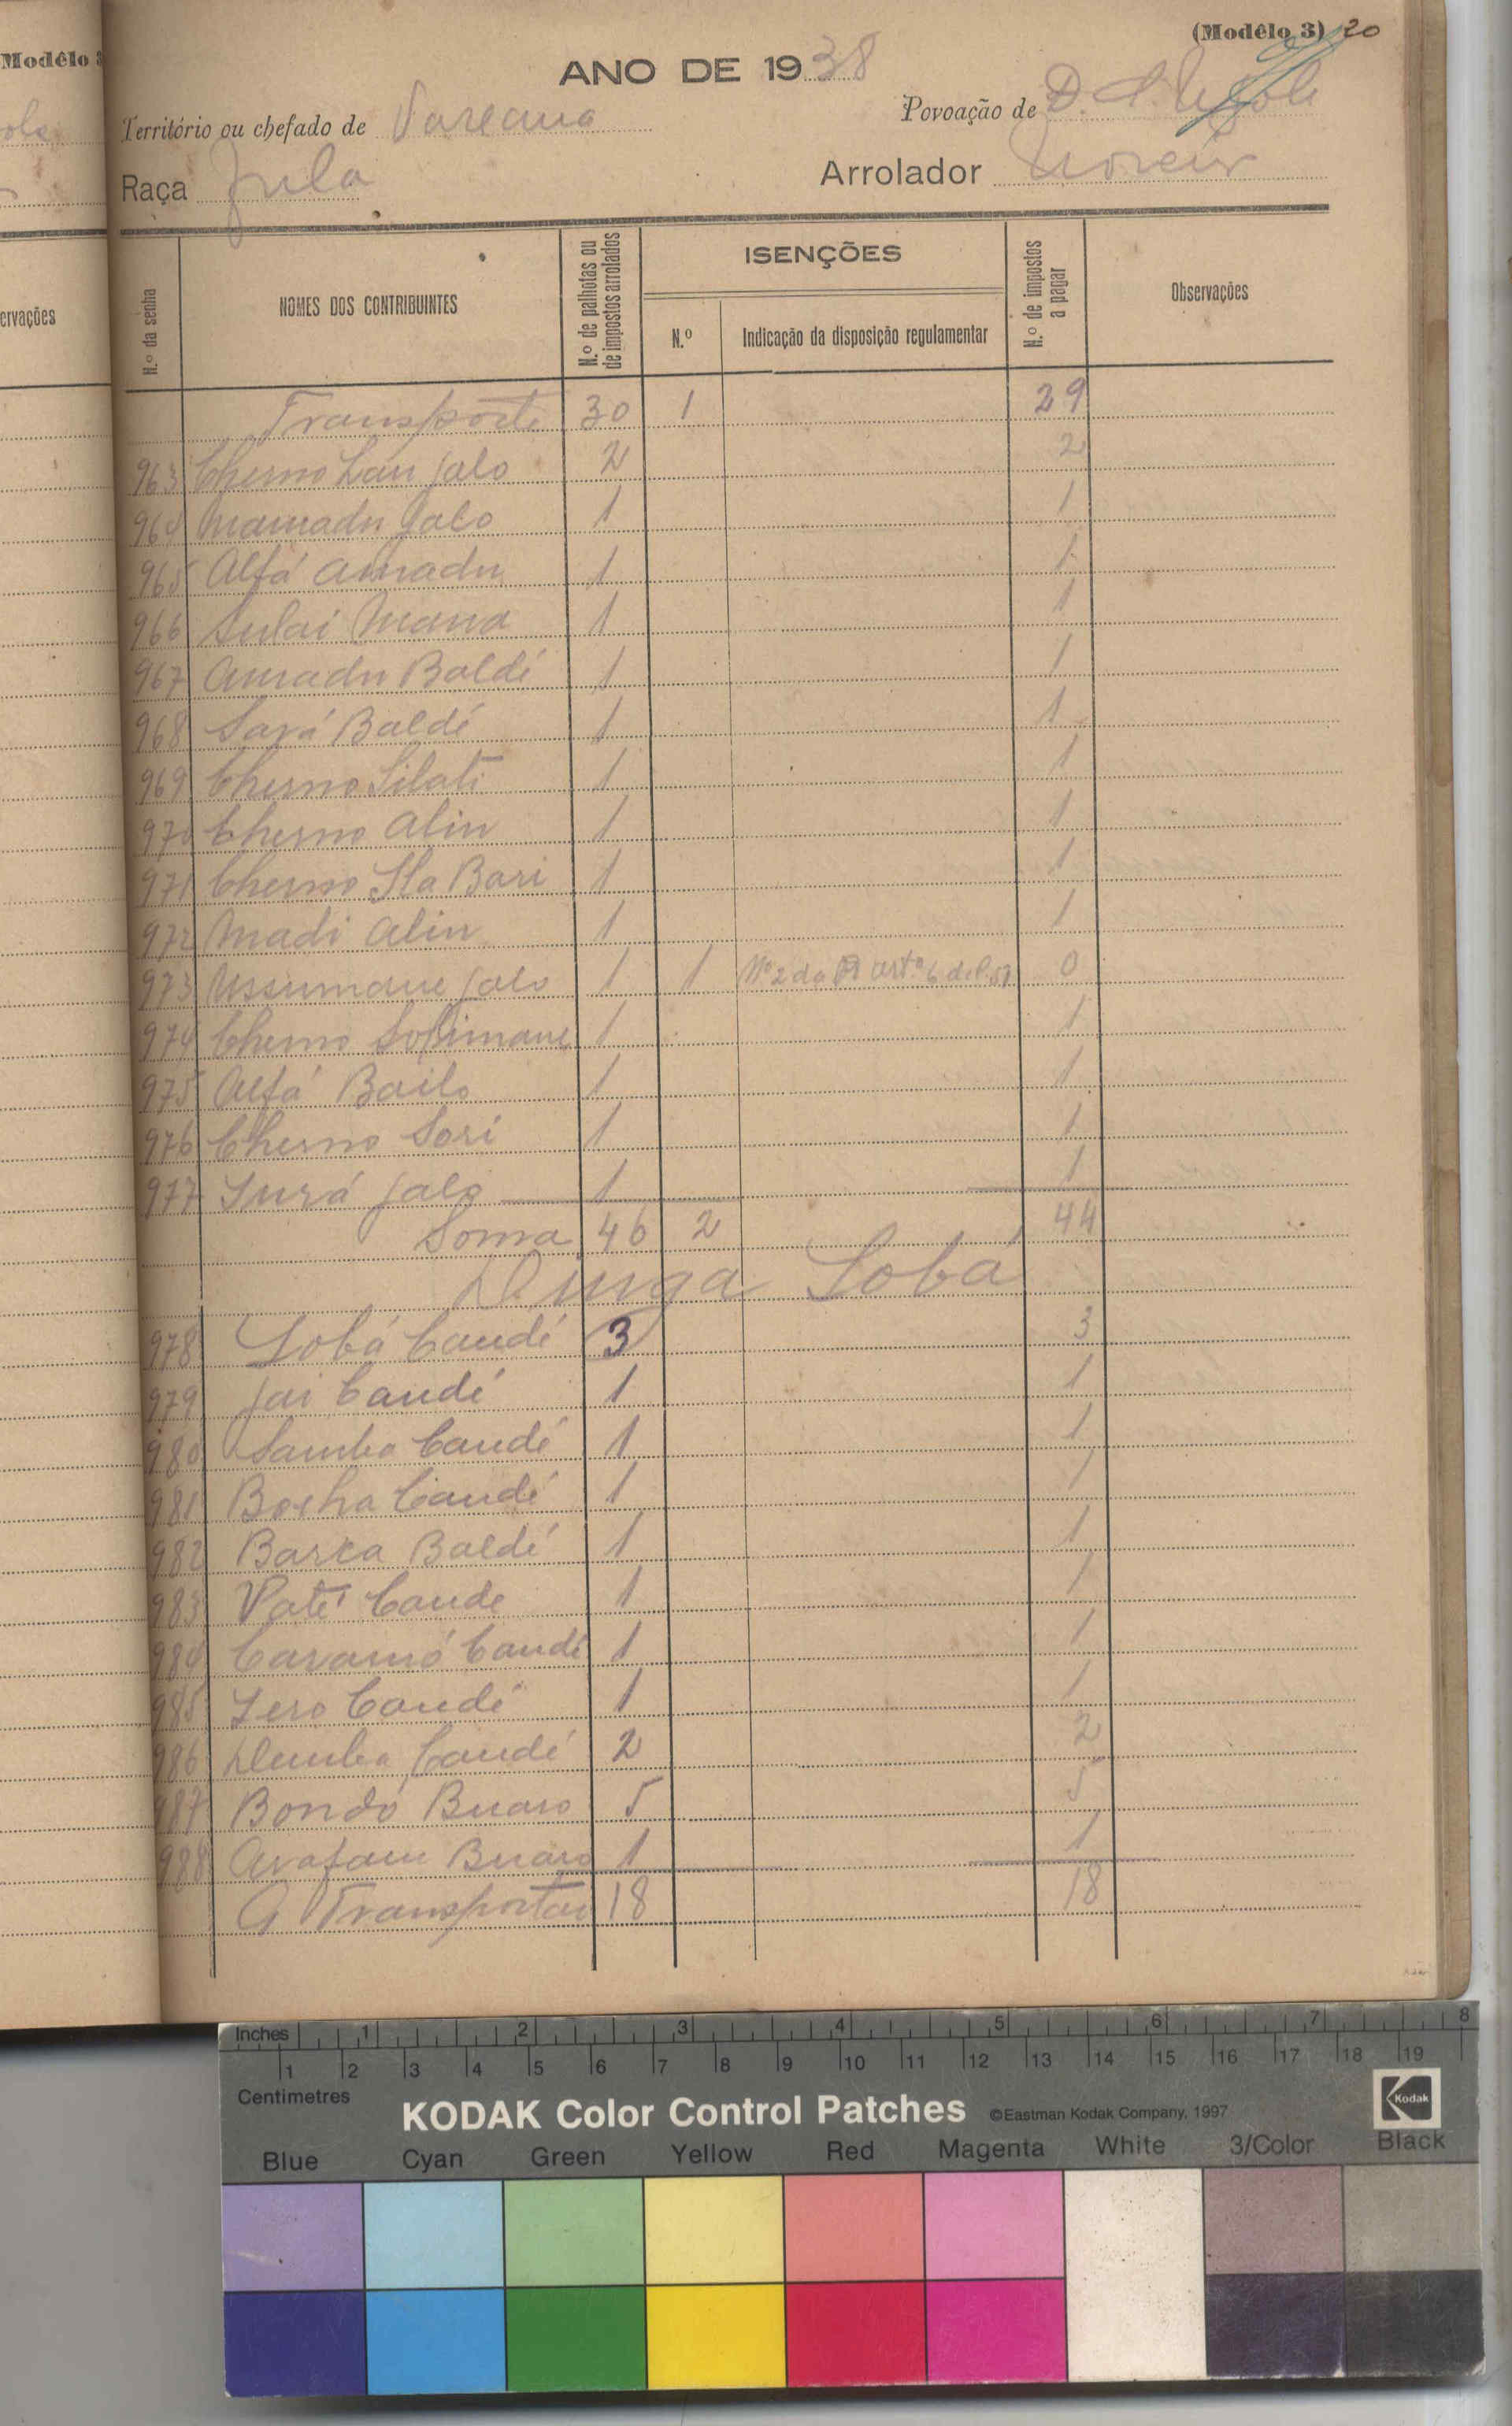 Modêlo 3
(Modêlo 3) 20
ANO DE 1938
Território ou chefado de
Povoação de
Raça Fula
Arrolador Moreir
ervações
N.º da senha
NOMES DOS CONTRIBUINTES
N.º de palhotas ou de impostos arrolados
ISENÇÕES
N.º
Indicação da disposição regulamentar
N.º de impostos a pagar
Observações
Transporte 30 1 29
963 Cherno Lau Jalo 2 2
964 Mamadu Jalo 1 1
965 Alfá Amadu 1 1
966 Sulai Mana 1 1
967 Amadu Baldé 1 1
968 Sará Baldé 1 1
969 Cherno Silati 1 1
970 Cherno Alin 1 1
971 Cherno Sla Bari 1 1
972 Madi Alin 1 1
973 Ussumane Jalo 1 1 Nº 2 do artº 6 0
974 Cherno Solimane 1 1
975 Alfá Bailo 1 1
976 Cherno Sori 1 1
977 Surá Jalo 1 1
Soma 46 2 44
Lobá
978 Lobá Candé 3 3
979 Jai Candé 1 1
980 Samba Candé 1 1
981 Candé 1 1
982 Barca Baldé 1 1
983 Paté Cande 1 1
984 Caramó Candé 1 1
985 Candé 1 1
986 Demba Candé 2 2
987 Bondó Buaro 5 5
988 Arafam Buaro 1 1
A Transportar 18 18
Inches 1 2 3 4 5 6 7 8
1 2 3 4 5 6 7 8 9 10 11 12 13 14 15 16 17 18 19
Centimetres
KODAK Color Control Patches ©Eastman Kodak Company, 1997 Kodak
Blue Cyan Green Yellow Red Magenta White 3/Color Black